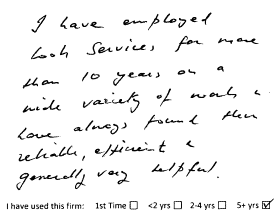 I have employed
Cook Services for more
than 10 years on a
wide variety of work &
have always found them
reliable, efficient &
generally very helpful.
I have used this firm: 1st Time ☐ <2 yrs ☐ 2-4 yrs ☐ 5+ yrs ☑